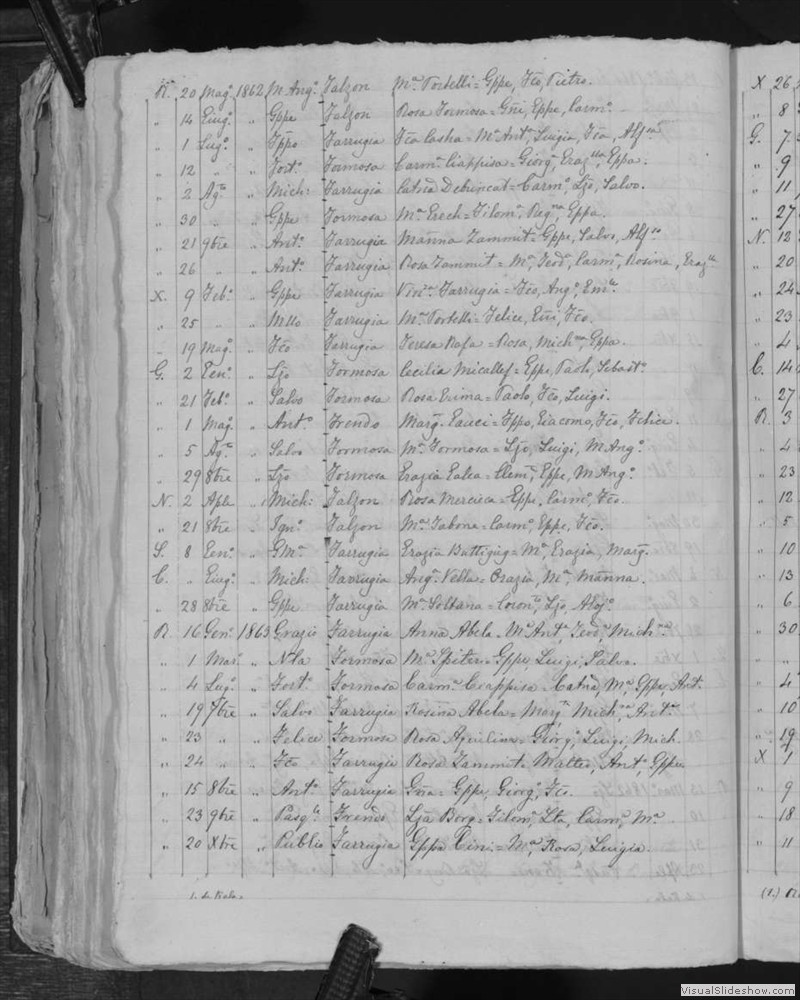 R. 20 Mag.º 1862 M. Ang.º Falzon M.ª Portelli = Gppe, Fčo, Pietro.
„ 14 Giug.º „ Gppe Falzon Rosa Formosa = Gppe, Carm.º
„ 1 Lug.º „ Fppo Farrugia Fča Casha = M.ª Ant.ª, Luigia, Fča
„ 12 „ „ Fort.º Formosa Carm.ª Ciappisa = Giorg.º
„ 2 Ag.º „ Mich: Farrugia Debuncat = Carm.º, Ljo, Salvo.
„ 30 „ „ Gppe Formosa M.ª = Filom.ª, Gppa.
„ 21 9bre „ Ant.º Farrugia Marina Zammit = Gppe, Salvo, Alf.so
„ 26 „ „ Ant.º Farrugia Rosa Zammit = M.ª, Teod.ª, Carm.ª, Rosina
X. 9 Feb.º „ Gppe Farrugia Farrugia = Fčo, Ang.º
„ 25 „ „ Mllo Farrugia M.ª Portelli = Felice, Fčo.
„ 19 Mag.º „ Fčo Farrugia Teresa Rafa = Rosa, Gppa.
G. 2 Gen.º „ Ljo Formosa Cecilia Micallef = Gppe, Paolo, Sebast.º
„ 21 Feb.º „ Salvo Formosa Rosa Grima = Paolo, Fčo, Luigi.
„ 1 Mag.º „ Ant.º Frendo Marg.ª Gauci = Fppo, Giacomo, Fčo, Felice.
„ 5 Ag.º „ Salvo Formosa M.ª Formosa = Ljo, Luigi, M. Ang.º
„ 29 8bre „ Ljo Formosa Grazia Galea = Clem.º, Gppe, M. Ang.º
N. 2 Aple „ Mich: Falzon Rosa Mercieca = Gppe, Carm.º, Fčo.
„ 21 8bre „ Ign.º Falzon M.ª Tabona = Carm.º, Gppe, Fčo.
S. 8 Gen.º „ Farrugia Grazia Buttigieg = M.ª, Grazia, Marg.ª
C. „ Giug.º „ Mich: Farrugia Ang.ª Vella = Orazia, M.ª, Marina.
„ 28 8bre „ Gppe Farrugia M.ª Soltana = Ljo
R. 16 Gen.º 1863 Grazio Farrugia Anna Abela = M.ª Ant.ª, Teod.ª
„ 1 Mar. „ Formosa M.ª Spiteri = Gppe, Luigi, Salvo.
„ 4 Lug.º „ Fort.º Formosa Carm.ª Ciappisa = M.ª, Gppe, Ant.º
„ 19 7bre „ Salvo Farrugia Rosina Abela
„ 23 „ „ Felice Formosa Rosa Aquilina = Giorg.º, Luigi, Mich.
„ 24 „ „ Fčo Farrugia Rosa Zammit = Matteo, Ant.º, Gppe
„ 15 8bre „ Ant.º Farrugia = Gppe, Giorg.º, Fčo.
„ 23 9bre „ Pasq.le Frendo Lja Borg = Filom.ª, Carm.ª, M.ª
„ 20 Xbre „ Publio Farrugia Gppa Cini = M.ª, Rosa, Luigia.
X 26
„ 8
G. 7
„ 9
„ 11
„ 27
N. 12
„ 20
„ 24
„ 23
„ 4
C. 14
„ 27
R. 3
„ 4
„ 23
„ 12
„ 5
„ 10
„ 13
„ 6
„ 30
„ „
„ 4
„ 10
„ 19
X 1
„ 9
„ 18
„ 11
VisualSlideshow.com